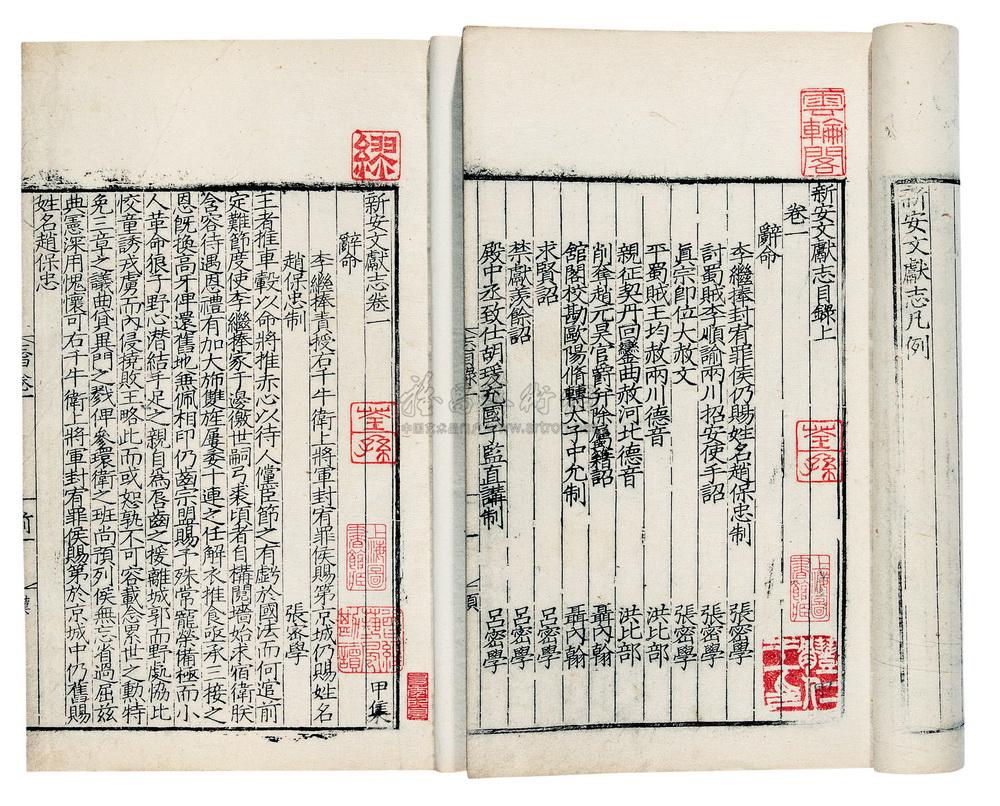 新安文獻志凡例
雲輪閣
荃孫
上海圖書館藏
新安文獻志目錄上
卷一
辭命
李繼捧封宥罪侯仍賜姓名趙保忠制 張密學
討蜀賊李順諭兩川招安使手詔 張密學
眞宗即位大赦文 張密學
平蜀賊王均赦兩川德音 洪比部
親征契丹回鑾曲赦河北德音 洪比部
削奪趙元昊官爵并除屬籍詔 聶內翰
舘閣校勘歐陽脩轉太子中允制 聶內翰
求賢詔 呂密學
禁獻羨餘詔 呂密學
殿中丞致仕胡瑗充國子監直講制 呂密學
繆
荃孫
上海圖書館藏
新安文獻志卷一 甲集
辭命
李繼捧責授右千牛衛上將軍封宥罪侯賜第京城仍賜姓名
趙保忠制 張密學
王者推車轂以命將推赤心以待人儻臣節之有虧於國法而何逭前
定難節度使李繼捧家于邊徼世嗣弓裘頃者自構鬩墻始求宿衛朕
含容待遇恩禮有加大旆雙旌屢委十連之任解衣推食亟承三接之
恩旣換高牙俾還舊地兼佩相印仍齒宗盟賜予殊常寵榮備極而小
人革命狼子野心潛結手足之親自為唇齒之援離城郭而野處協比
佼童誘戎虜而內侵撓敗王略此而或恕孰不可容載念累世之勳特
免三章之議曲貸軍門之戮俾參環衛之班尚預列侯無忘省過屈茲
典憲深用愧懷可右千牛衛上將軍封宥罪侯賜第於京城中仍舊賜
姓名趙保忠